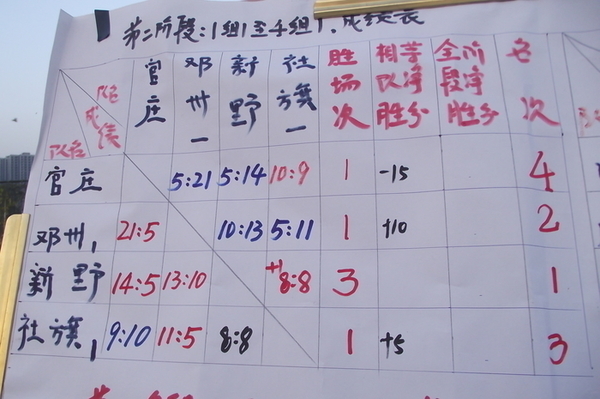 第二阶段:1组1至4组1.成绩表
队名 成绩 队名 官庄 邓州一 新野 社旗一 胜场次 相等队净胜分 全阶段净胜分 名次
官庄 5:21 5:14 10:9 1 -15 4
邓州1 21:5 10:13 5:11 1 +10 2
新野 14:5 13:10 +1 8:8 3 1
社旗1 9:10 11:5 8:8 1 +5 3